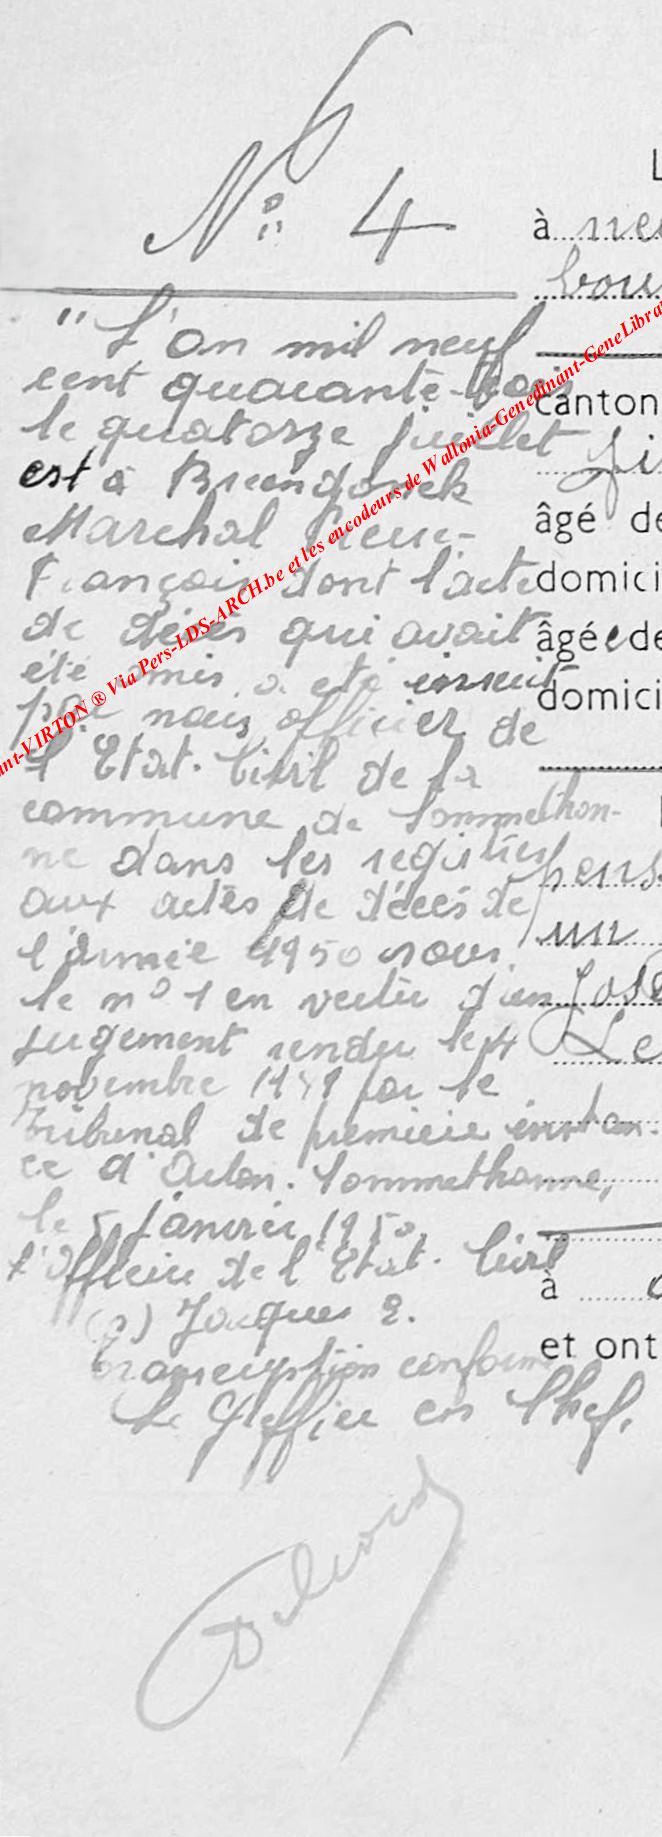 N° 4
L
à
"L'an mil neuf
cent quarante-trois
canton
le quatorze juillet
est à Breendonck
âgé de
Marchal
François dont l'acte
domici
de décès qui avait
âgée de
été omis, a été inscrit
domici
par nous officier de
l'Etat-Civil de la
commune de Sommethon-
ne dans les registres
aux actes de décès de
un
l'année 1950 sous
le n° 1 en vertu d'un
jugement rendu le 14
Le
novembre 1949 par le
Tribunal de première instan-
ce d'Arlon. Sommethonne,
le 5 janvier 1950,
l'Officier de l'Etat-Civil
à
(s) Jacques E.
et ont
transcription conforme
Le Greffier en Chef,
ant-VIRTON ® Via Pers-LDS-ARCH.be et les encodeurs de Wallonia-Genedinant-GeneLibra